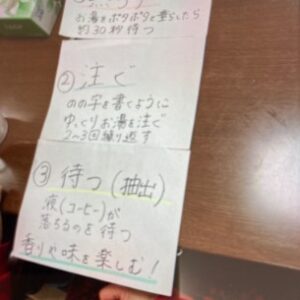 お湯をポタポタと垂らしたら
約30秒待つ
② 注ぐ
のの字を書くように
ゆっくりお湯を注ぐ
2〜3回繰り返す
③ 待つ(抽出)
液(コーヒー)が
落ちるのを待つ
香りや味を楽しむ!